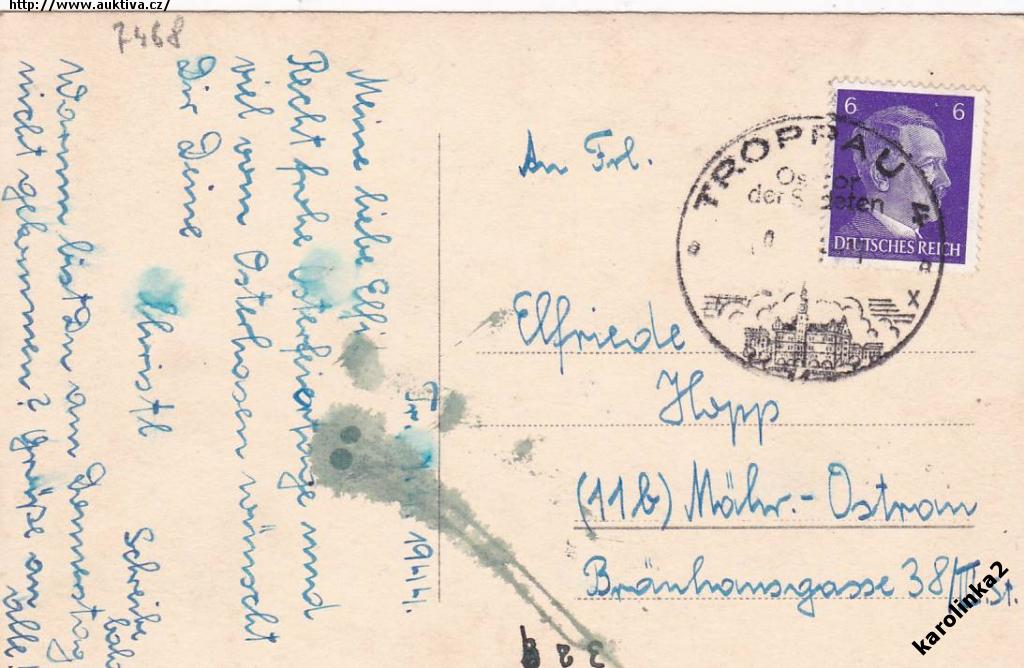 http://www.auktiva.cz/
7468
Tr. 1944.
Meine liebe Elfi!
Recht frohe Osterfeiertage und
viel vom Osterhasen wünscht
Dir Deine
Christl
Schreibe
Warum bist Du am Donnerstag
nicht gekommen? Grüße an alle!
An Frl.
Elfriede
Hopp
(11b) Mähr.-Ostrau
Bräuhausgasse 38/III. St.
TROPPAU 4
der
6 6
DEUTSCHES REICH
karolinka2